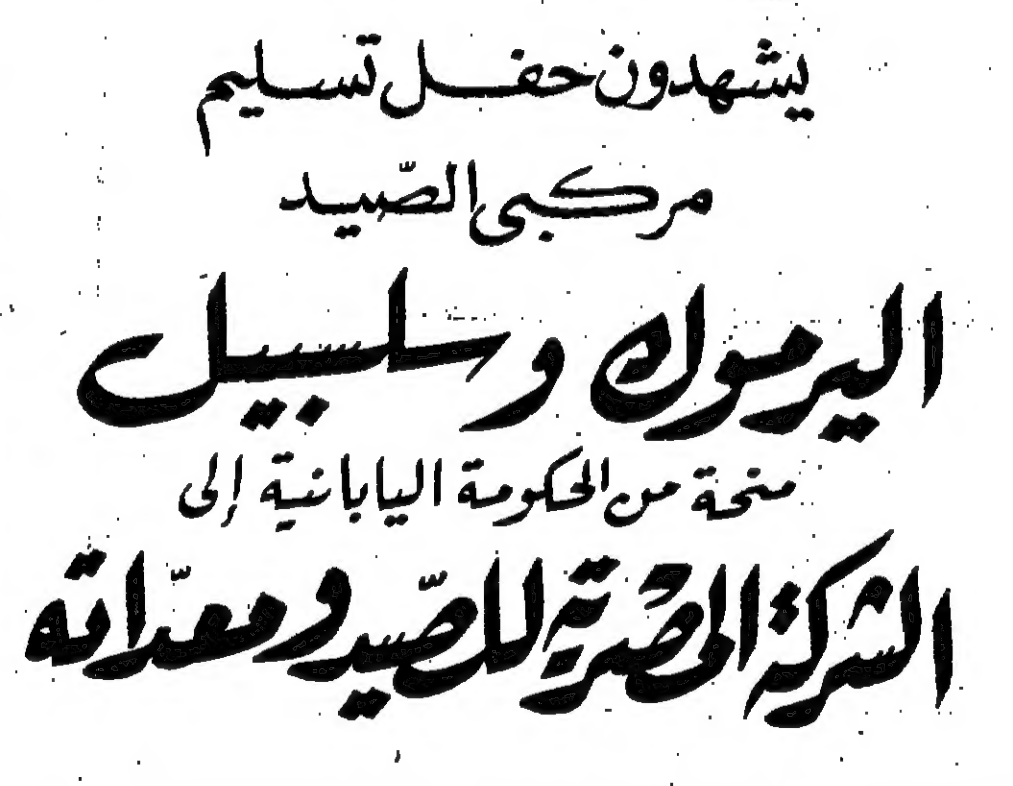 يشهدون حفل تسليم
مركبى الصّيد
اليرموك وسلسبيل
منحة من الحكومة اليابانية إلى
الشركة المصرية للصّيد ومعدّاته